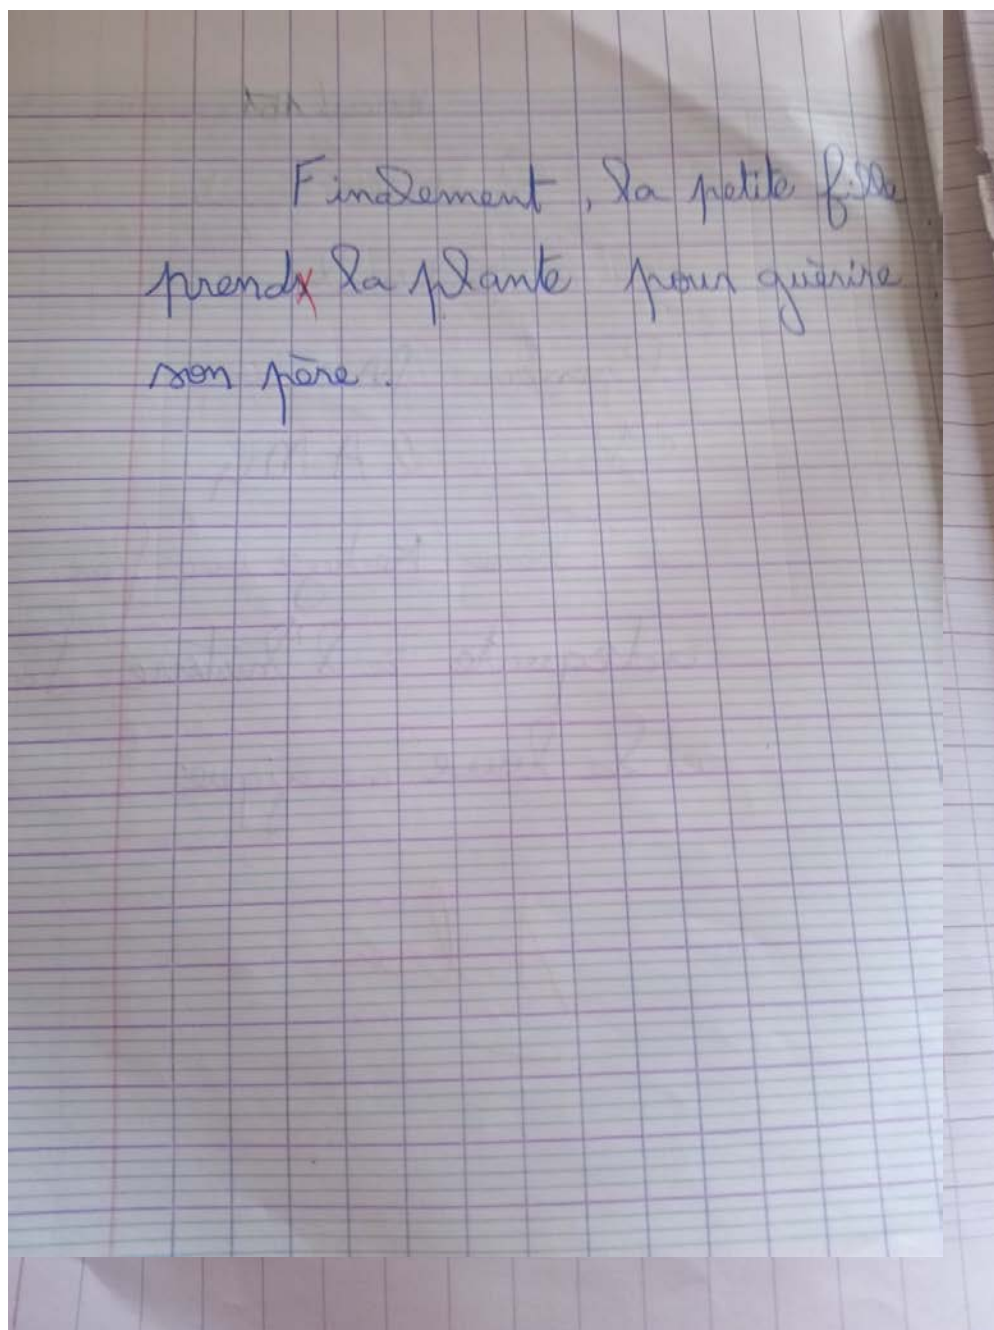 Finalement, la petite fille
prend la plante pour guérire
son père.